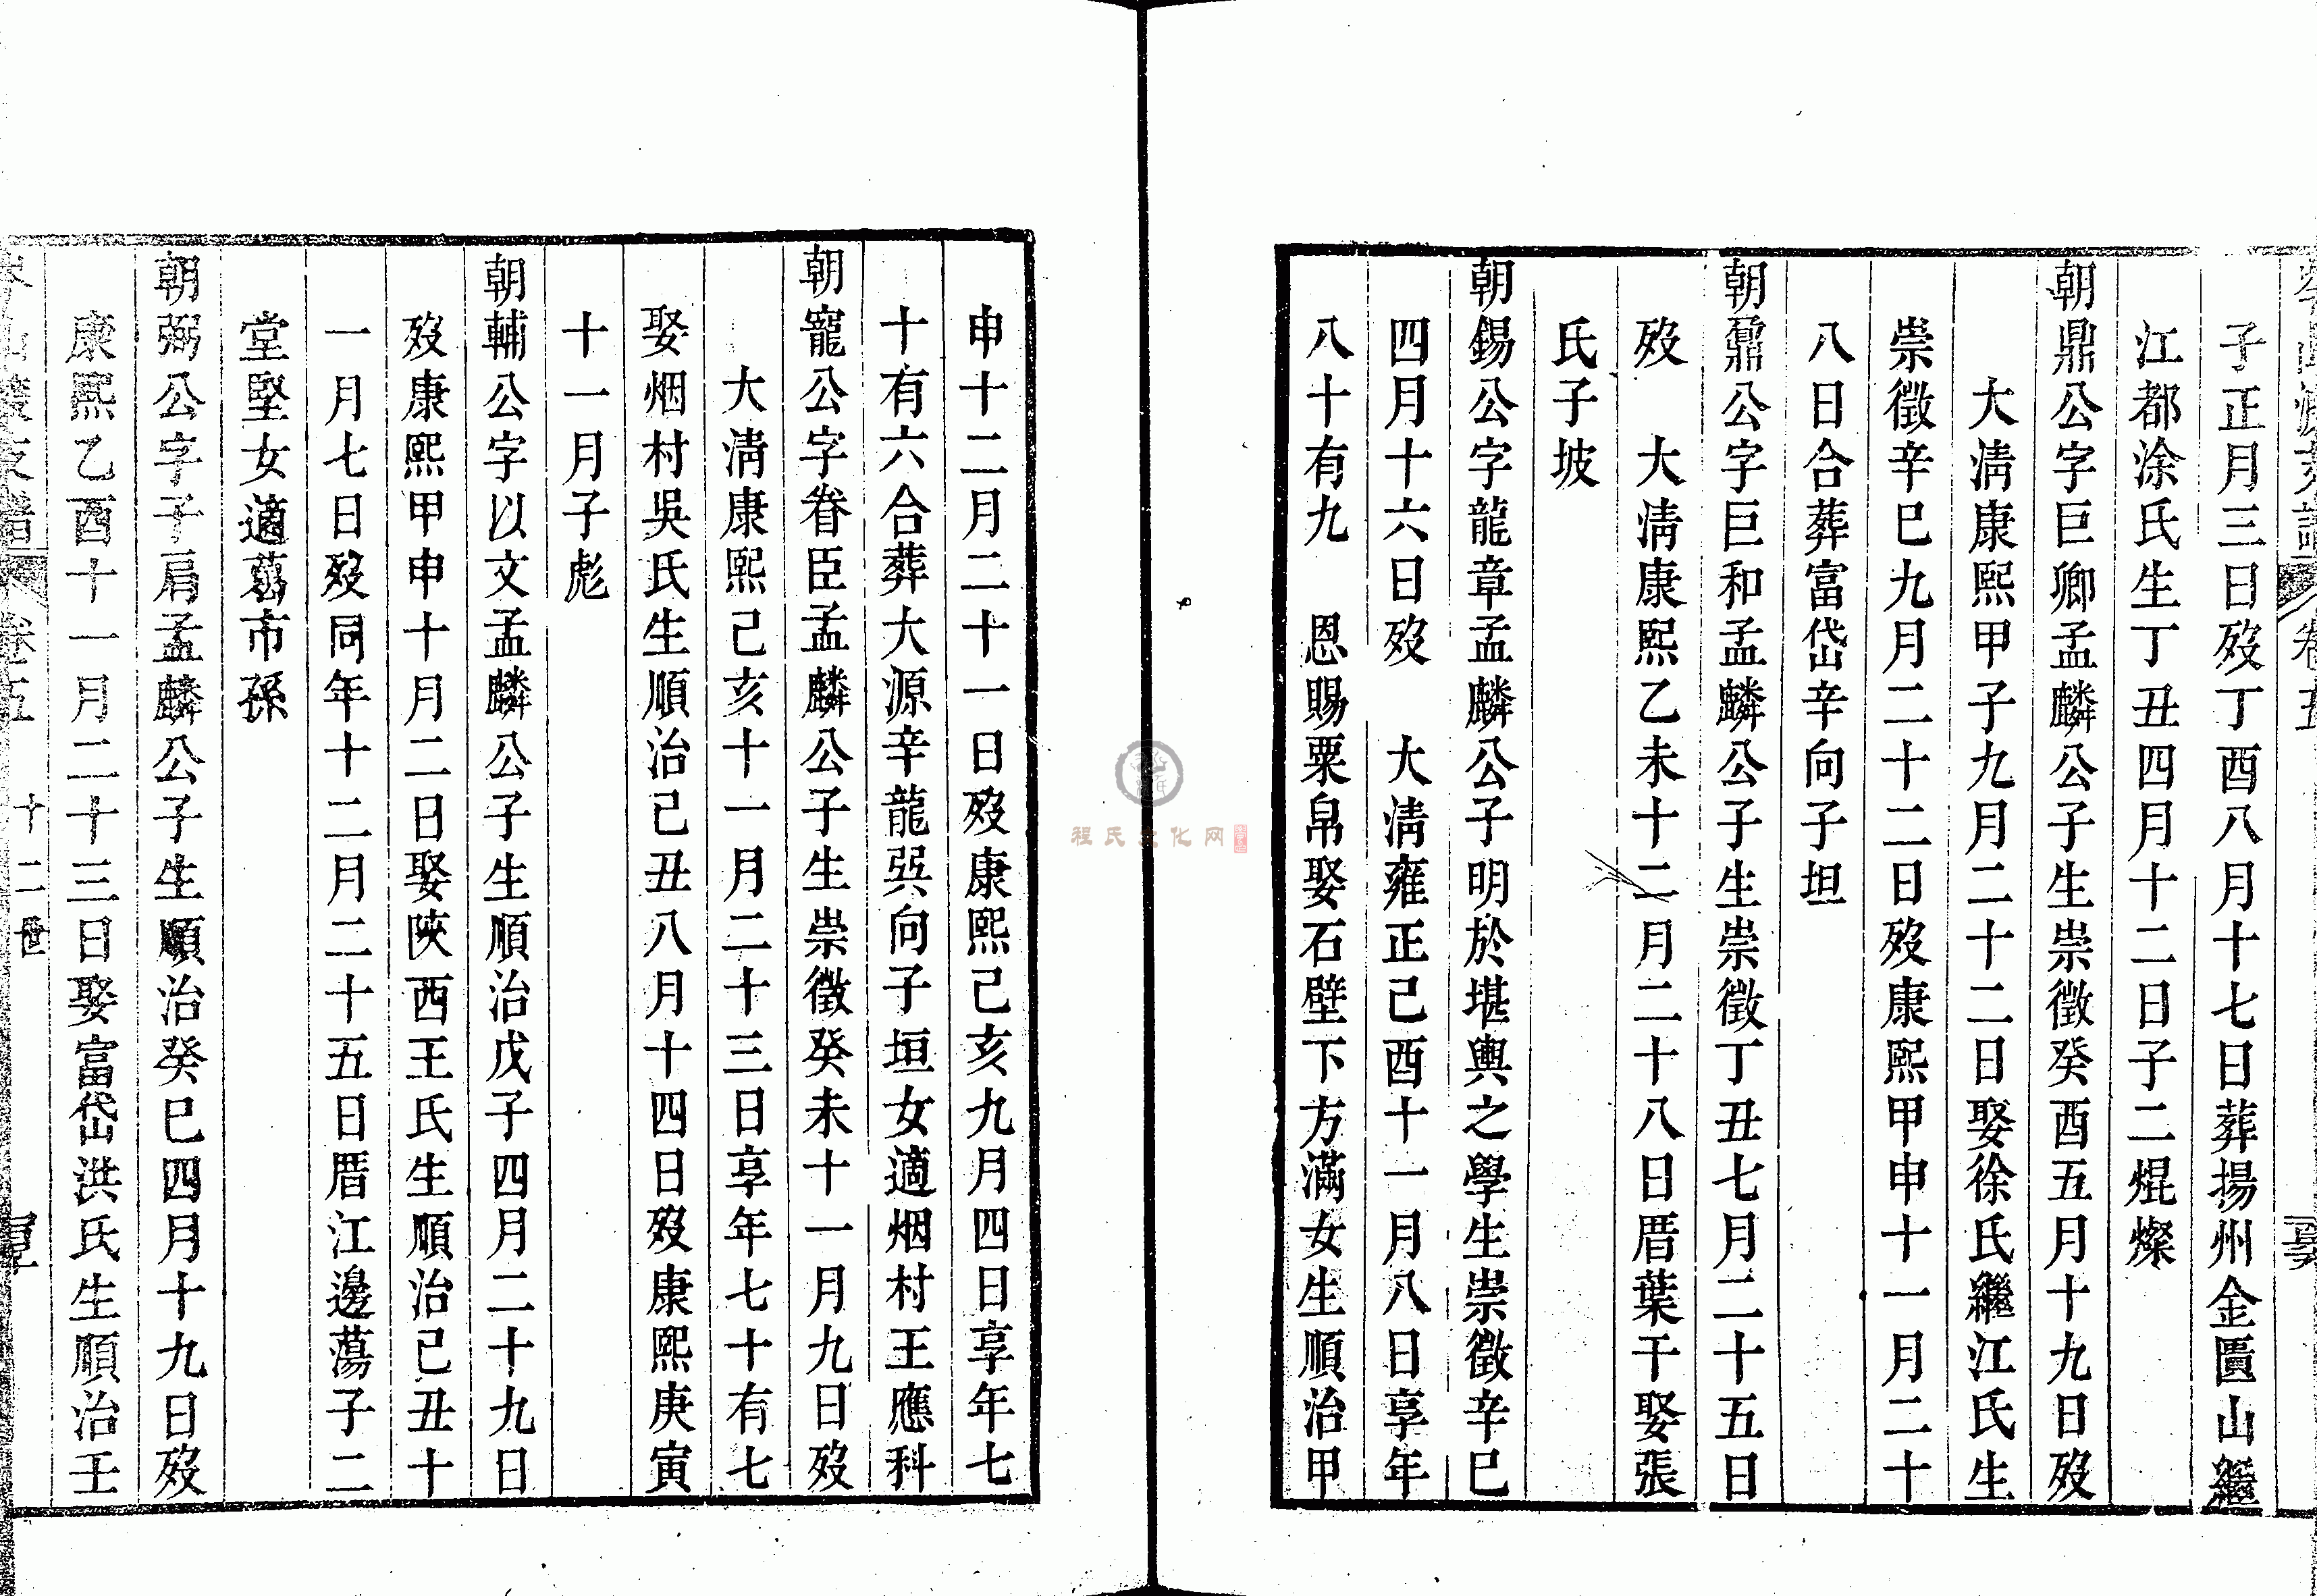 子正月三日歿丁酉八月十七日葬揚州金匱山繼
江都涂氏生丁丑四月十二日子二焜燦
朝鼎公字巨卿孟麟公子生崇徵癸酉五月十九日歿
大淸康熙甲子九月二十二日娶徐氏繼江氏生
崇徵辛巳九月二十二日歿康熙甲申十一月二十
八日合葬富岱辛向子坦
朝鼐公字巨和孟麟公子生崇徵丁丑七月二十五日
歿 大淸康熙乙未十二月二十八日厝葉干娶張
氏子坡
朝錫公字龍章孟麟公子明於堪輿之學生崇徵辛巳
四月十六日歿 大淸雍正己酉十一月八日享年
八十有九 恩賜粟帛娶石壁下方滿女生順治甲
申十二月二十一日歿康熙己亥九月四日享年七
十有六合葬大源辛龍巽向子垣女適烟村王應科
朝寵公字眷臣孟麟公子生崇徵癸未十一月九日歿
大淸康熙己亥十一月二十三日享年七十有七
娶烟村吳氏生順治己丑八月十四日歿康熙庚寅
十一月子彪
朝輔公字以文孟麟公子生順治戊子四月二十九日
歿康熙甲申十月二日娶陝西王氏生順治己丑十
一月七日歿同年十二月二十五日厝江邊蕩子二
堂堅女適葛市孫
朝弼公字子肩孟麟公子生順治癸巳四月十九日歿
康熙乙酉十一月二十三日娶富岱洪氏生順治壬
卷五 十二世
程氏文化网